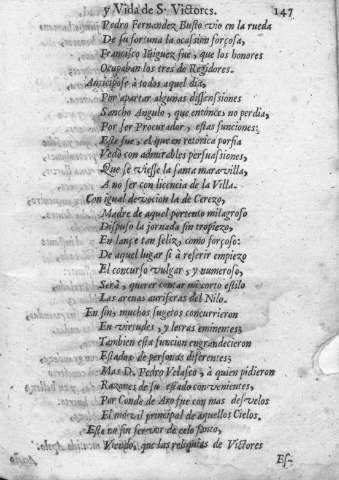 y Vida de S. Victores. 147
Pedro Fernandez Busto vio en la rueda
De su fortuna la ocassion forçosa,
Francisco Iñiguez fue, que los honores
Ocupaban los tres de Regidores.
Anticipose à todos aquel dia,
Por apartar algunas dissensiones
Sancho Angulo, que entonces no perdia,
Por ser Procurador, estas funciones:
Este fue, el que en retorica porfia
Vedò con admirables persuassiones,
Que se viesse la santa maravilla,
A no ser con licencia de la Villa.
Con igual devocion la de Cerezo,
Madre de aquel portento milagroso
Dispuso la jornada sin tropiezo,
En lance tan feliz, como forçoso:
De aquel lugar si à referir empiezo
El concurso vulgar, y numeroso,
Serà, querer contar mi corto estilo
Las arenas auriferas del Nilo.
En fin, muchos sugetos concurrieron
En virtudes, y letras eminentes;
Tambien esta funcion engrandecieron
Estados de personas diferentes;
Mas D. Pedro Velasco, à quien pidieron
Razones de su estado convenientes,
Por Conde de Aro fue con mas desvelos
El movil principal de aquellos Cielos.
Este no sin fervor de celo santo,
Viendo, que las reliquias de Victores
Es-